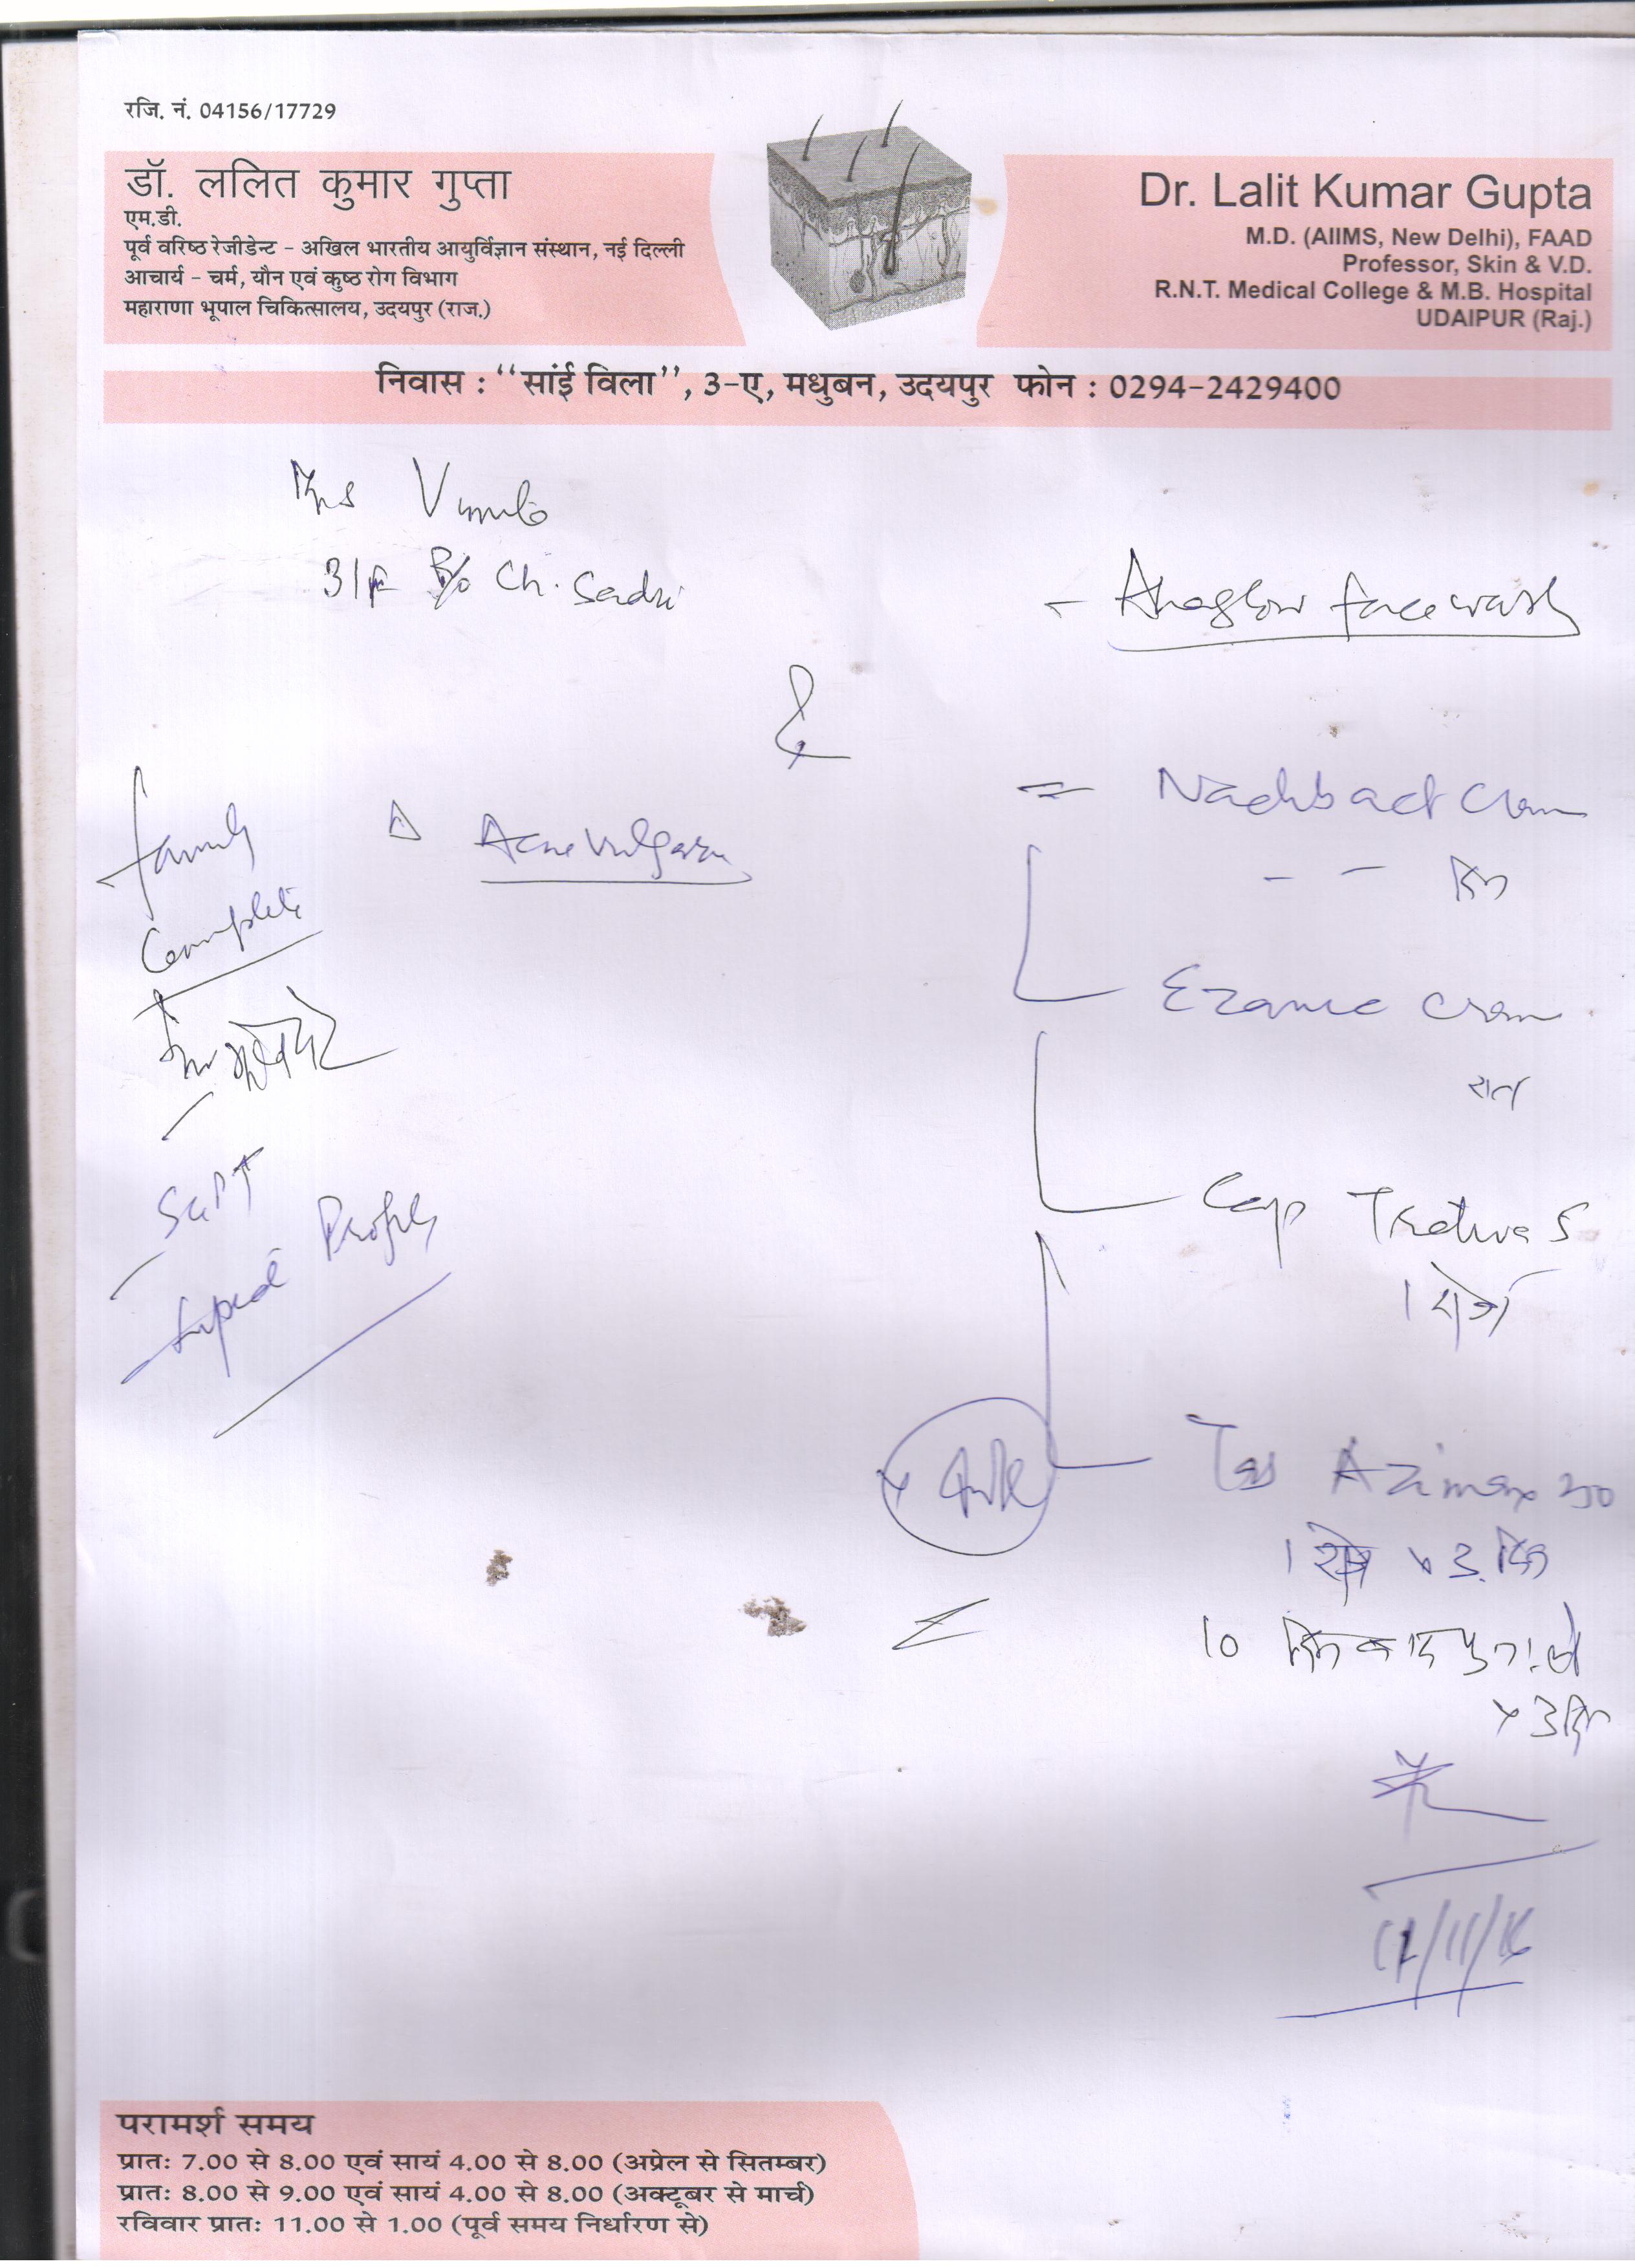 रजि. नं. 04156/17729
डॉ. ललित कुमार गुप्ता
एम.डी.
पूर्व वरिष्ठ रेजीडेन्ट - अखिल भारतीय आयुर्विज्ञान संस्थान, नई दिल्ली
आचार्य - चर्म, यौन एवं कुष्ठ रोग विभाग
महाराणा भूपाल चिकित्सालय, उदयपुर (राज.)
Dr. Lalit Kumar Gupta
M.D. (AIIMS, New Delhi), FAAD
Professor, Skin & V.D.
R.N.T. Medical College & M.B. Hospital
UDAIPUR (Raj.)
निवास : "सांई विला", 3-ए, मधुबन, उदयपुर फोन : 0294-2429400
31F R/o Ch. Sadri
Family
Complete
Δ Acne Vulgaris
SGPT
Lipid Profile
- Ahaglow facewash
Cream
दिन
Cream
रात
Cap
1 रोज
Tab Azimax
1 रोज x 3 दिन
10 दिन बाद पुनः लें
x 3 दिन
परामर्श समय
प्रातः 7.00 से 8.00 एवं सायं 4.00 से 8.00 (अप्रेल से सितम्बर)
प्रातः 8.00 से 9.00 एवं सायं 4.00 से 8.00 (अक्टूबर से मार्च)
रविवार प्रातः 11.00 से 1.00 (पूर्व समय निर्धारण से)